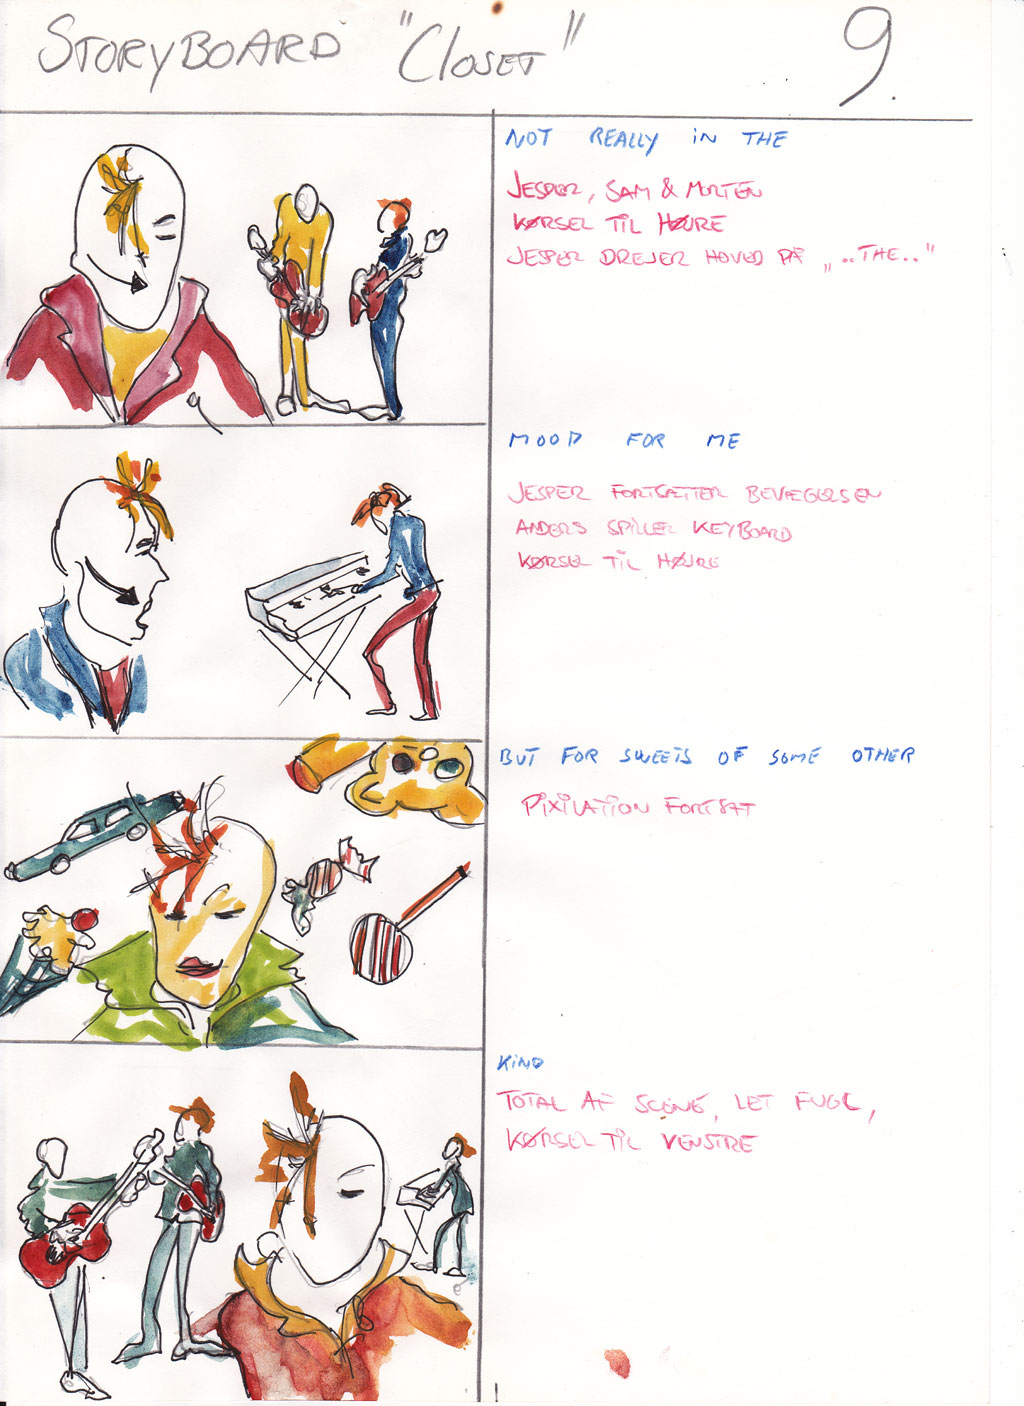 STORYBOARD "CLOSET" 9.
NOT REALLY IN THE
JESPER, SAM & MORTEN
KØRSEL TIL HØJRE
JESPER DREJER HOVED PÅ „..THE.."
MOOD FOR ME
JESPER FORTSÆTTER BEVÆGERSEN
ANDERS SPILLER KEYBOARD
KØRSEL TIL HØJRE
BUT FOR SWEETS OF SOME OTHER
PIXILATION FORTSAT
KIND
TOTAL AF SCENE, LET FUGL,
KØRSEL TIL VENSTRE